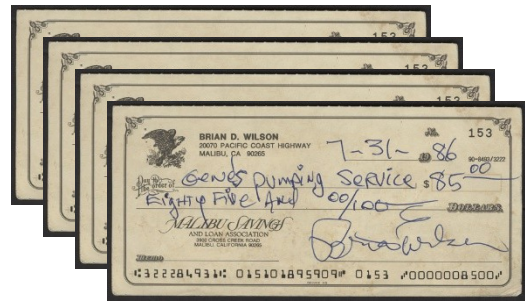 153
153
153
BRIAN D. WILSON
20070 PACIFIC COAST HIGHWAY
MALIBU, CA 90265
153
7-31- 19 86
90-8493/3222
Pay to the order of Genes Pumping Service $ 85 00
Eighty Five And 00/100 DOLLARS
MALIBU SAVINGS
AND LOAN ASSOCIATION
3822 CROSS CREEK ROAD
MALIBU, CALIFORNIA 90265
Brian Wilson
MEMO
⑆322284931⑆ 015101895909⑈ 0153 ⑈0000008500⑈